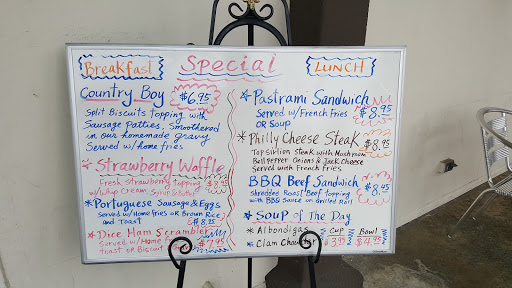 Special
Breakfast
Country Boy $6.95
Split Biscuits topping with
Sausage Patties, Smothered
in our homemade gravy
Served w/home fries
Strawberry Waffle
Fresh Strawberry topping $8.95
w/whip Cream
Portuguese Sausage & Eggs
Served w/Home fries or Brown Rice
and Toast $8.95
Dice Ham Scrambler
Served w/Home fries $7.95
Toast or Biscuit
Lunch
Pastrami Sandwich
Served w/French fries $8.95
or Soup
Philly Cheese Steak $8.95
Top Sirloin Steak with Mushroom
Bell pepper Onions & Jack Cheese
Served with French fries
BBQ Beef Sandwich
Shredded Roast Beef topping $8.95
with BBQ Sauce on Grilled Roll
Soup of The Day
Albondigas Cup Bowl
Clam Chowder $3.95 $4.95